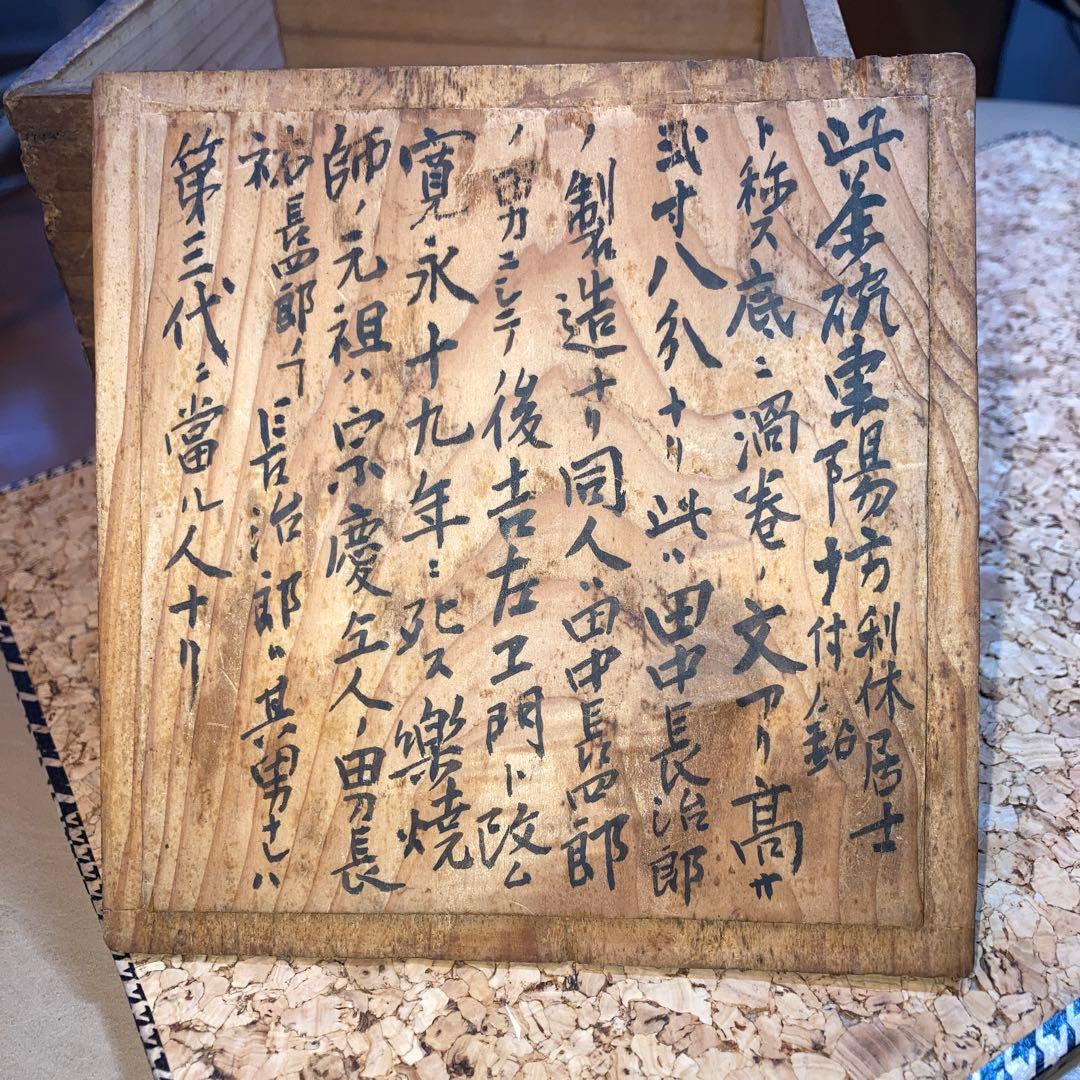 此茶碗東陽坊利休居士ナ付ノ銘
ト称ス底ニ渦巻ノ文アリ高サ
弐寸八分ナリ此ハ田中長治郎
ノ製造ナリ同人ハ田中長四郎
ノ男ニシテ後吉左ヱ門ト改ム
寛永十九年ニ死ス樂焼
師ノ元祖ハ宗慶ト人ノ男長
祐長四郎ノ長治郎ハ其男ナレハ
第三代ニ當ル人ナリ